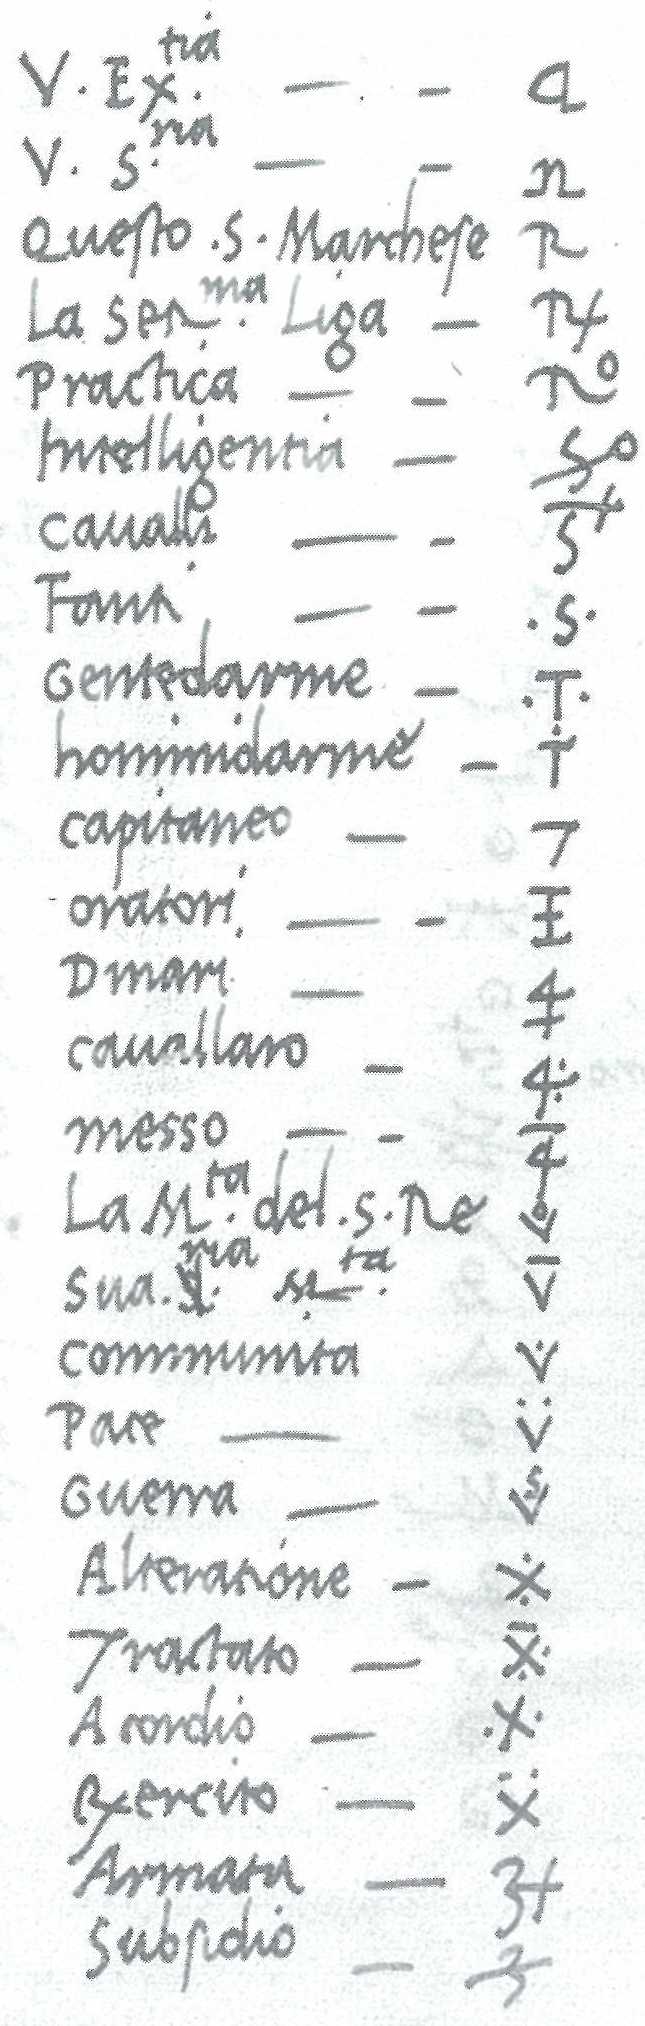 V. Ex.tia — - a
V. S.ria — - n
Questo .S. Marchese R
La Ser.ma Liga —
Practica — - Ro
Intelligentia —
Cavalli — -
Fanti — - .S.
Gentedarme — .T.
hominidarme — Ṫ
capitaneo — 7
oratori — -
Dinari —
cavallaro —
messo — -
La M.ta del .S. Re
Sua. S.ria M.ta V̄
Communita V̇
Pace — V̈
Guerra —
Alteratione —
Tractato —
Acordio — .X.
Exercito — Ẍ
Armata — 3+
Subsidio —